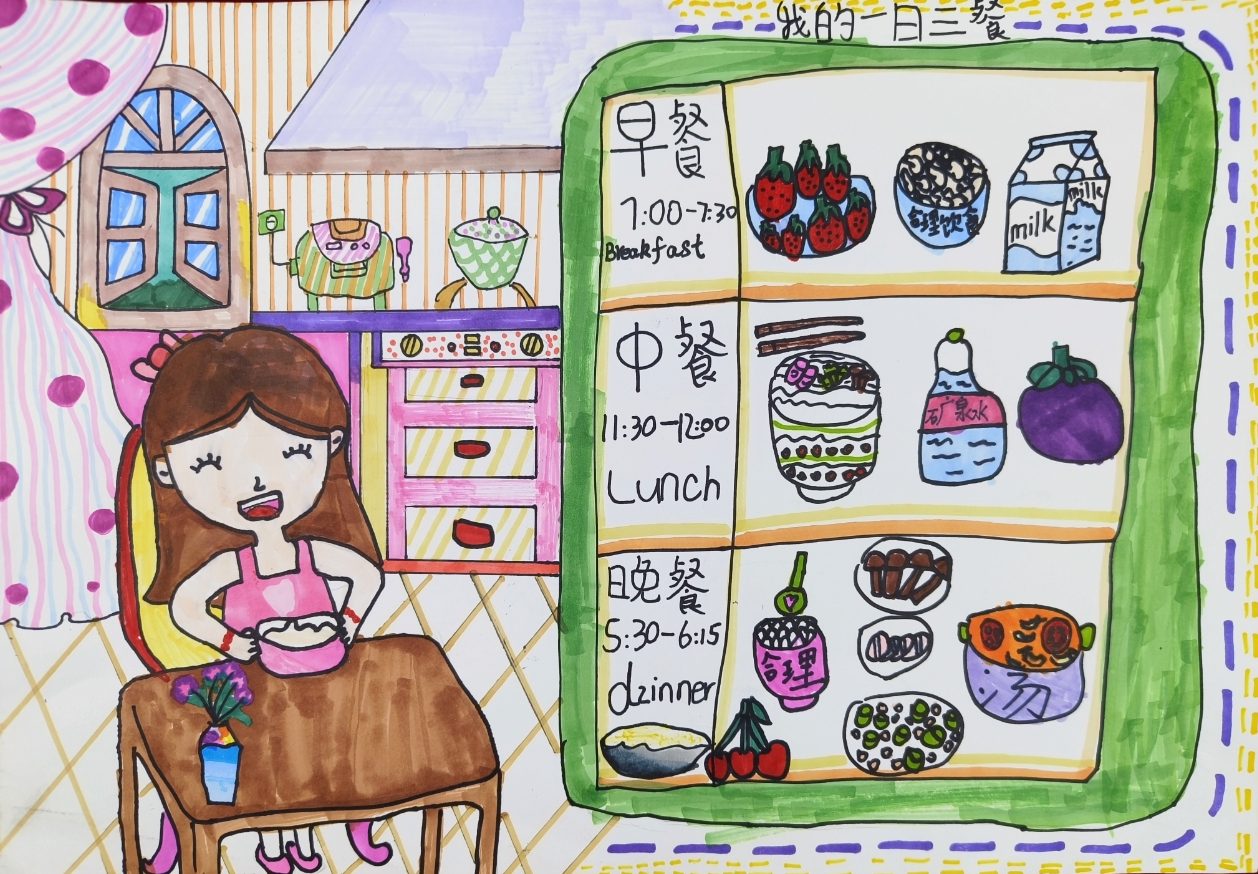 我的一日三餐
早餐
7:00-7:30
Breakfast
合理饮食
milk
milk
中餐
11:30-12:00
Lunch
矿泉水
晚餐
5:30-6:15
dzinner
合理
汤